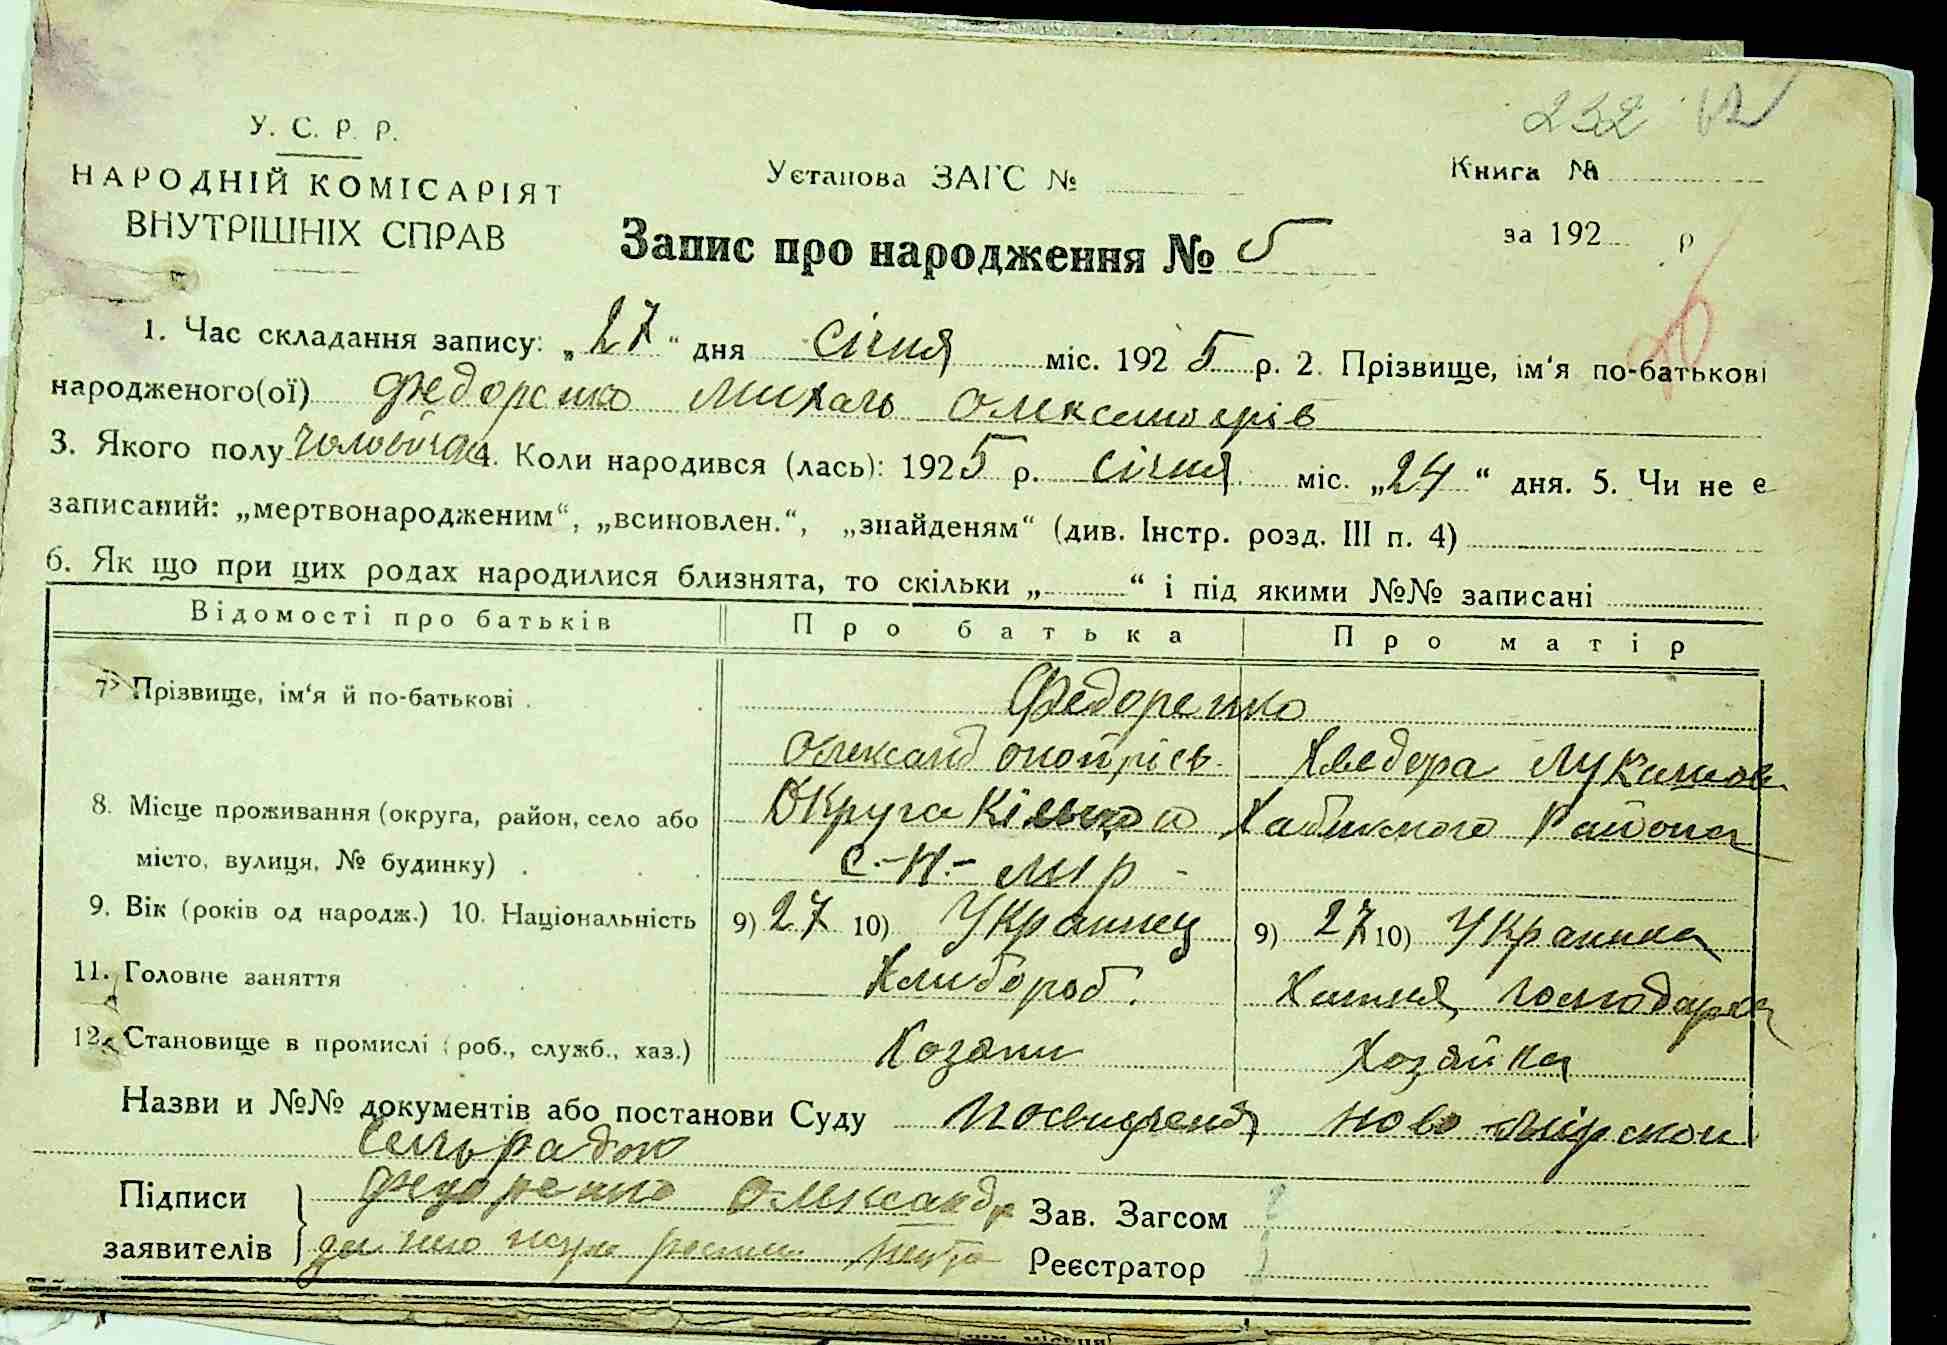 232
У. С. Р. Р.
НАРОДНІЙ КОМІСАРІЯТ
ВНУТРІШНІХ СПРАВ
Установа ЗАГС №
Книга №
за 192 р
Запис про народження № 5
1. Час складання запису: „27“ дня січня міс. 1925 р. 2. Прізвище, ім'я по-батькові
народженого(ої) Федоренко Михаль Олександрів
3. Якого полу 4. Коли народився (лась): 1925 р. січня міс. „24“ дня. 5. Чи не є
записаний: „мертвонародженим“, „всиновлен.“, „знайденям“ (див. Інстр. розд. III п. 4)
6. Як що при цих родах народилися близнята, то скільки „ “ і під якими №№ записані
Відомості про батьків Про батька Про матір
7. Прізвище, ім'я й по-батькові Федоренко
Олександ Хведора
8. Місце проживання (округа, район, село або Округа Района
місто, вулиця, № будинку) С.-Н.-Мір
9. Вік (років од народж.) 10. Національність 9) 27 10) Украинец 9) 27 10) Украинка
11. Головне заняття Хлибороб. Хатня господарка
12. Становище в промислі (роб., служб., хаз.) Хозяин Хозяйка
Назви и №№ документів або постанови Суду Ново-Мірскои
Сельради
Підписи Федоренко Олександр Зав. Загсом
заявителів Реєстратор